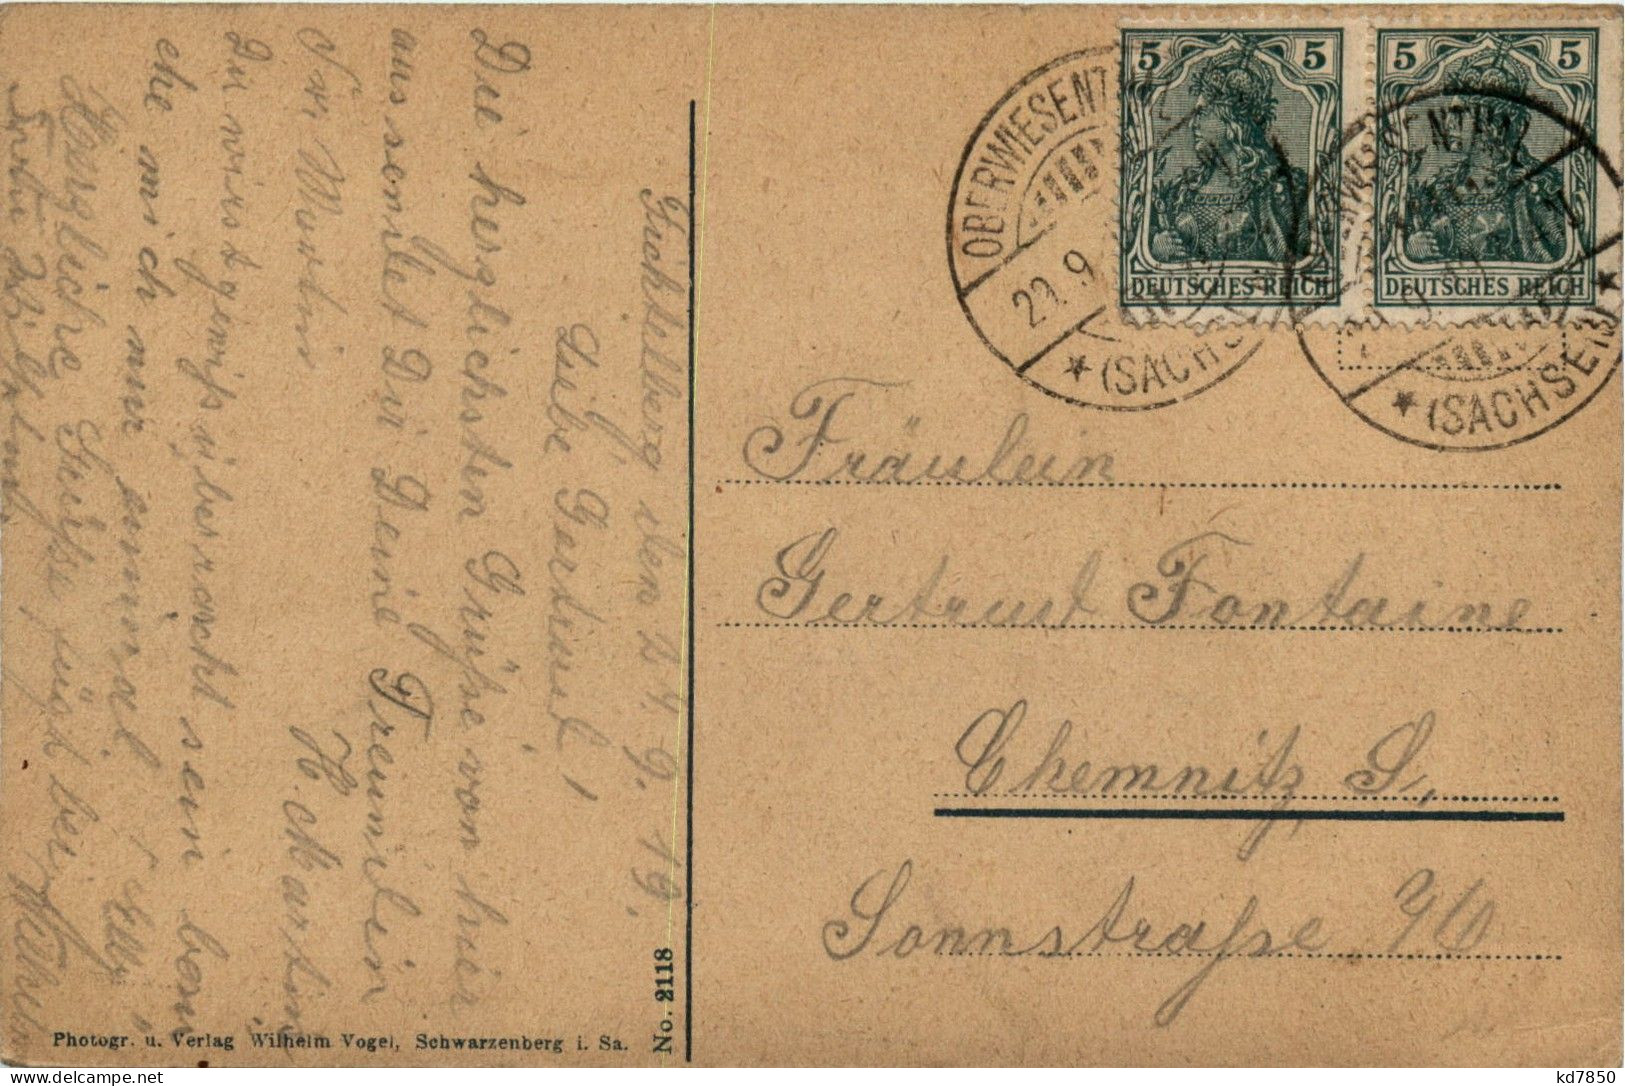 Fichtelberg den 24. 9. 19.
Liebe Gertrud!
Die herzlichsten Grüße von hier
aus sendet Dir Deine Freundin
H. Martin
Du wirst gewiß überrascht sein von
mich nur einmal
Elly
Herzliche Grüße, fügt bei
No. 2118
Photogr. u. Verlag Wilhelm Vogel, Schwarzenberg i. Sa.
5 5
DEUTSCHES REICH
5 5
DEUTSCHES REICH
OBERWIESENTHAL
29. 9.
★ (SACHSEN)
OBERWIESENTHAL
★ (SACHSEN) ★
Fräulein
Gertrud Fontaine
Chemnitz S.,
Sonnstraße
kd7850